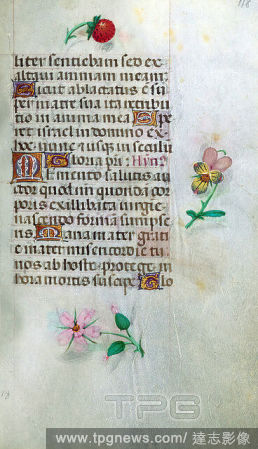 118
liter sentiebam sed ex
altaui animam meam:
Sicut ablactatus ē su
per matre sua ita retribu
tio in anima mea Spe
ret israel in domino ex
hoc nunc et usq; in seculū
Gloria pri: Hyn?
Memento salutis au
ctor quod nr̄i quondā cor
poris ex illibata uirgie
nascendo formā sumpse
ris Maria mater grati
e mater misericordie tu
nos ab hoste protege in
hora mortis suscipe Glo
TPG
www.tpgnews.com/ 達志影像